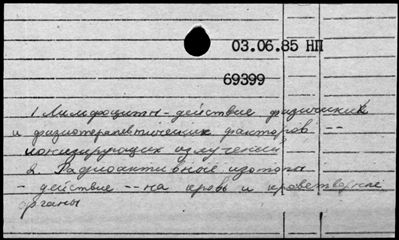 03.06.85 НП
69399
1. Лимфоциты - действие физических
и физиотерапевтических факторов --
ионизирующих излучений
2. Радиоактивные изотопы
- действие -- на кровь и кроветворные
органы